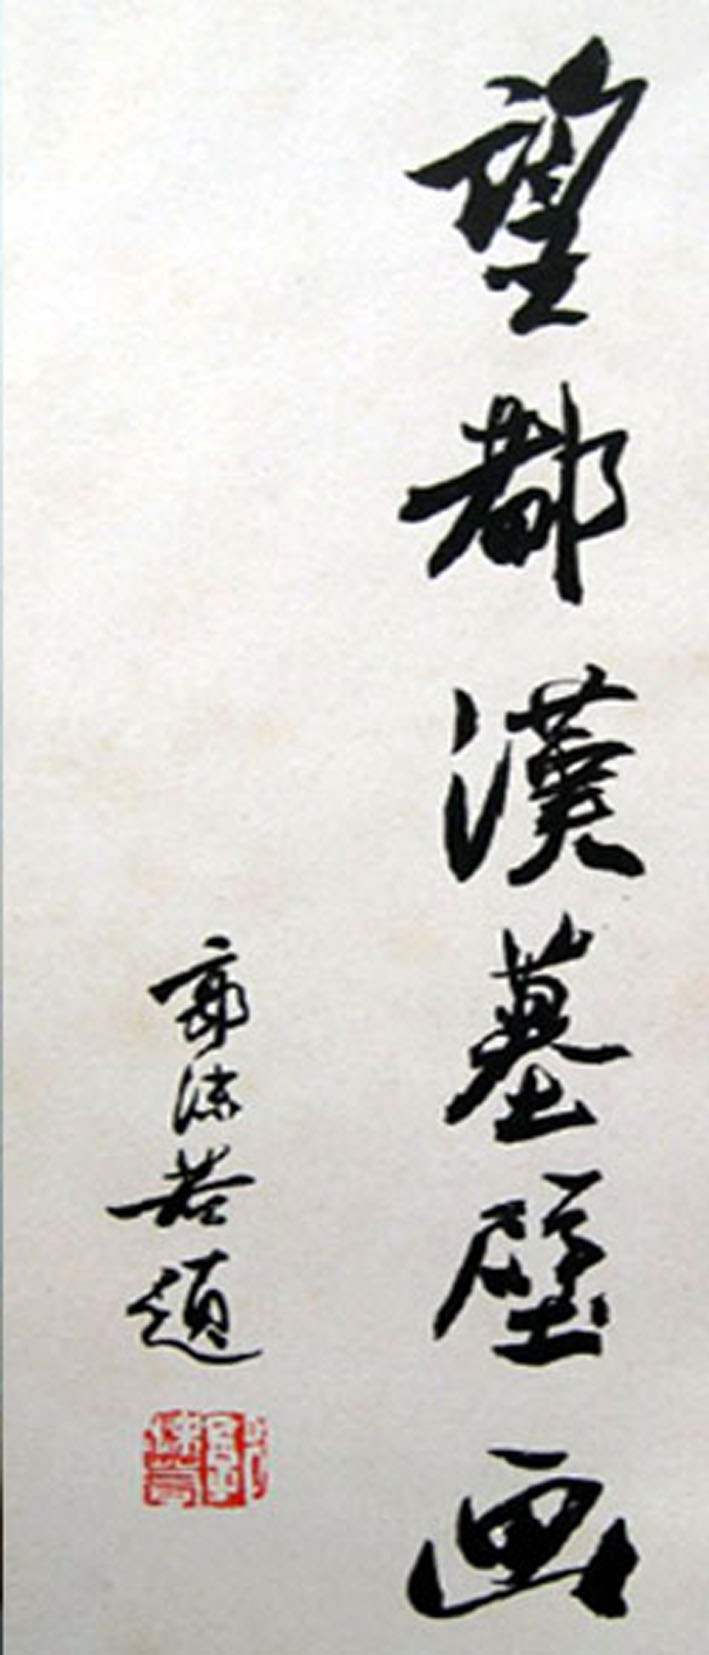 望都漢墓壁画
郭沫若題